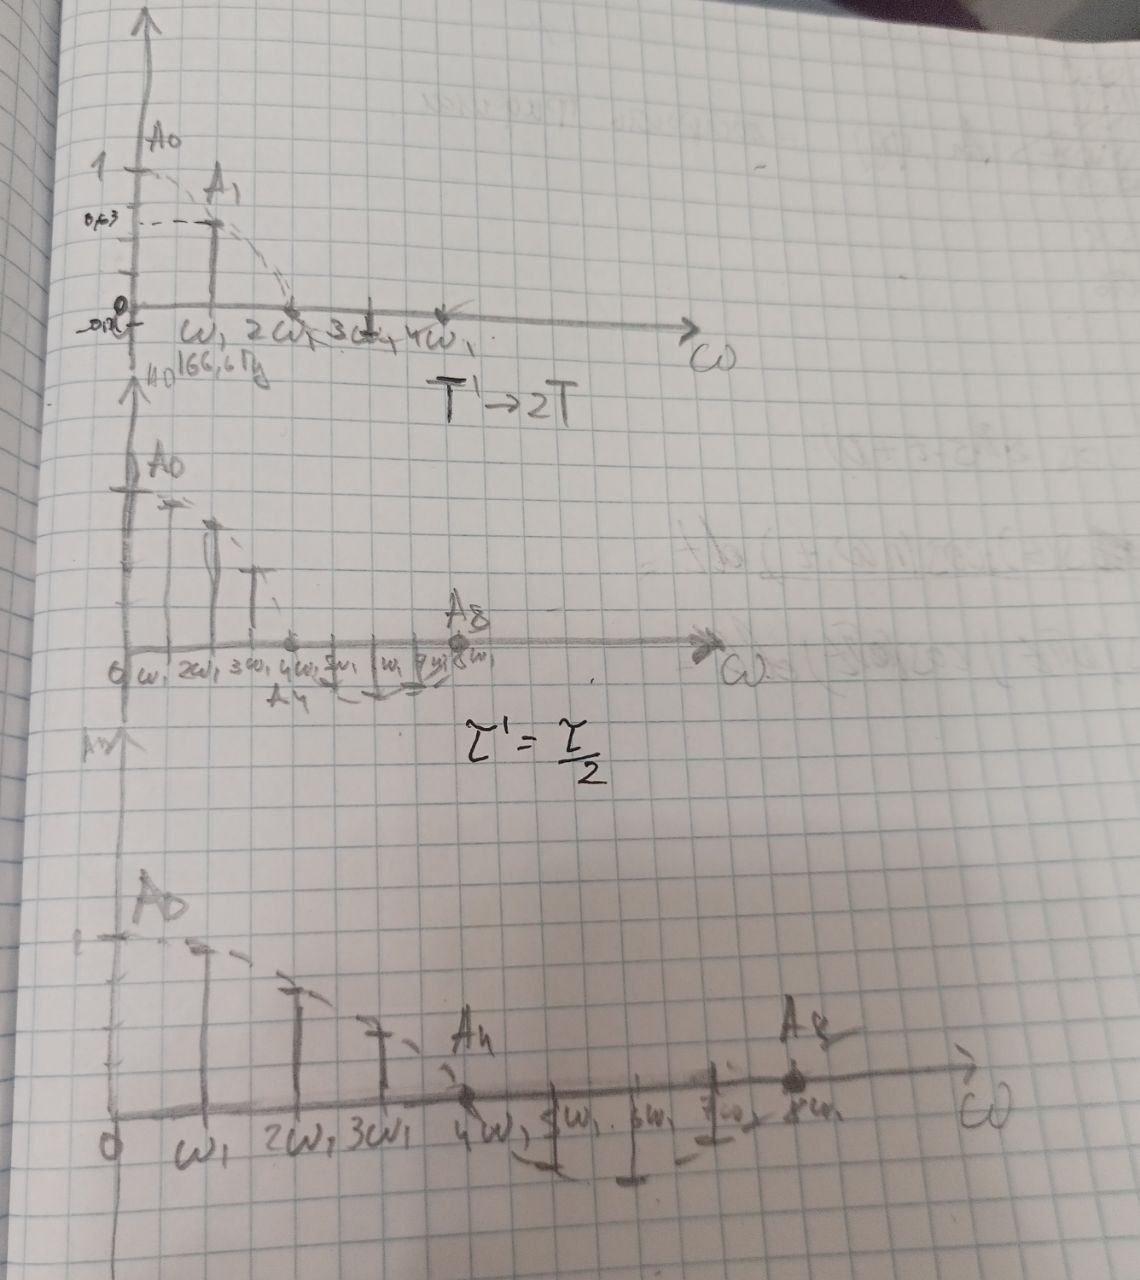 A0
1
A1
0,63
0
ω1 2ω1 3ω1 4ω1
ω
166,6 Гц
T' → 2T
A0
A8
0 ω1 2ω1 3ω1 4ω1 5ω1 ω1 7ω1 8ω1
ω
A4
τ' = τ/2
A0
1
A4
A8
0 ω1 2ω1 3ω1 4ω1 5ω1 6ω1 7ω1 8ω1
ω